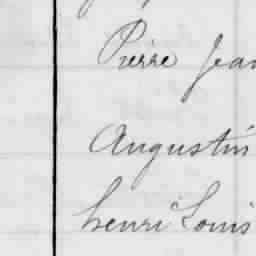 Pierre Jean
Augustin
henri Louis